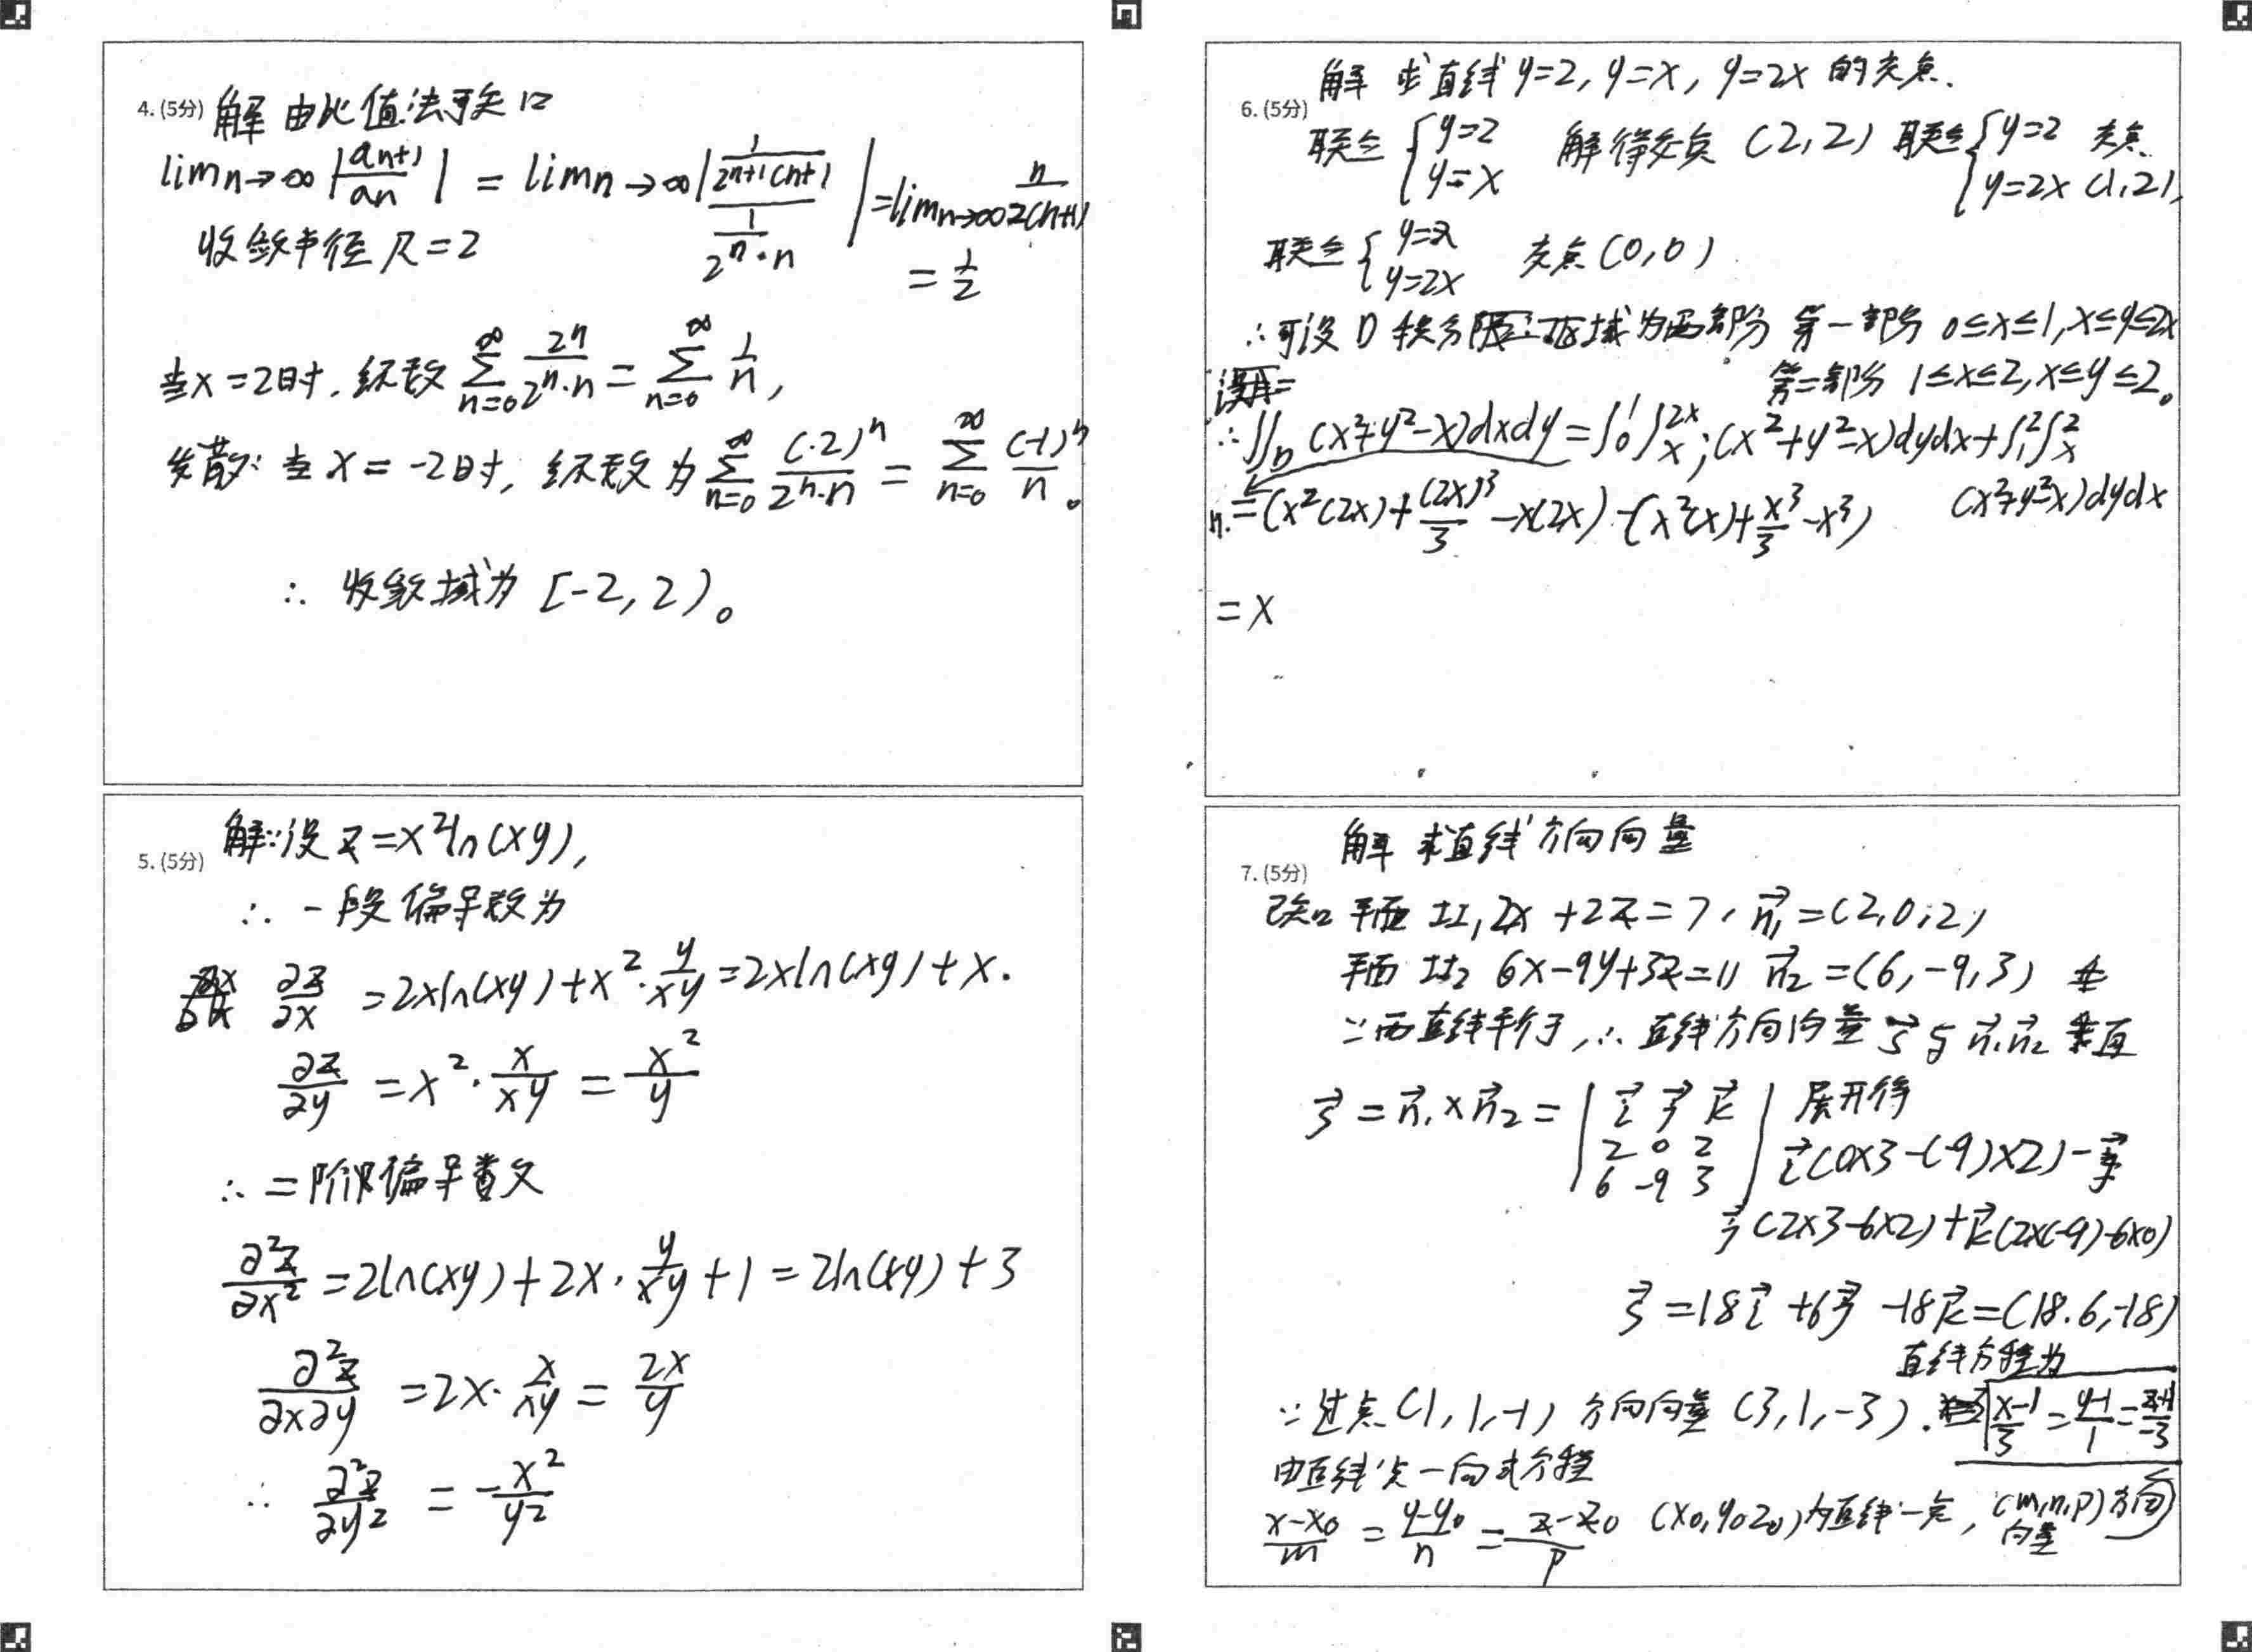 4. (5分) 解 由比值法可知
lim n→∞ |an+1/an| = lim n→∞ |(1/(2n+1(n+1)))/(1/(2^n·n))| = lim n→∞ n/(2(n+1))
收敛半径 R=2
= 1/2
当x=2时,级数 ∑_{n=0}^{∞} 2^n/(2^n·n) = ∑_{n=0}^{∞} 1/n,
发散: 当x=-2时,级数为 ∑_{n=0}^{∞} (-2)^n/(2^n·n) = ∑_{n=0}^{∞} (-1)^n/n。
∴ 收敛域为 [-2,2)。
5. (5分) 解:设 z=x²ln(xy),
∴ 一段偏导数为
∂z/∂x =2xln(xy)+x²·y/xy=2xln(xy)+x.
∂z/∂y =x²·x/xy = x²/y
∴ 二阶偏导数
∂²z/∂x² =2ln(xy)+2x·y/xy+1=2ln(xy)+3
∂²z/∂x∂y =2x·x/xy= 2x/y
∴ ∂²z/∂y² = -x²/y²
解 求直线 y=2, y=x, y=2x 的交点.
6. (5分)
联立 {y=2 y=x 解得交点 (2,2) 联立 {y=2 y=2x 交点 (1,2),
联立 {y=x y=2x 交点(0,0)
∴可设 D 积分区域为两部分 第一部分 0≤x≤1,x≤y≤2x
第二部分 1≤x≤2,x≤y≤2。
∴∬_D (x²+y²-x)dxdy=∫_0^1∫_x^{2x}(x²+y²-x)dydx+∫_1^2∫_x^2
(x²+y²-x)dydx
=(x²(2x)+(2x)³/3-x(2x))-(x²(x)+x³/3-x³)
=x
解 求直线方向向量
7. (5分)
已知 平面 π1, 2x+2z=7, n⃗1=(2,0,2)
平面 π2 6x-9y+3z=11 n⃗2=(6,-9,3)
∵两直线平行,∴直线方向向量 s⃗ 与 n⃗1 n⃗2 垂直
s⃗=n⃗1×n⃗2= |i⃗ j⃗ k⃗ 2 0 2 6 -9 3| 展开得
i⃗(0×3-(-9)×2)-
j⃗(2×3-6×2)+k⃗(2×(-9)-6×0)
s⃗=18i⃗+6j⃗-18k⃗=(18.6,-18)
直线方程为
∵过点(1,1,-1) 方向向量 (3,1,-3). (x-1)/3=(y-1)/1=(z+1)/-3
由直线点一向式方程
(x-x0)/m = (y-y0)/n = (z-z0)/p (x0,y0z0)为直线一点,(m,n,p)方向
向量